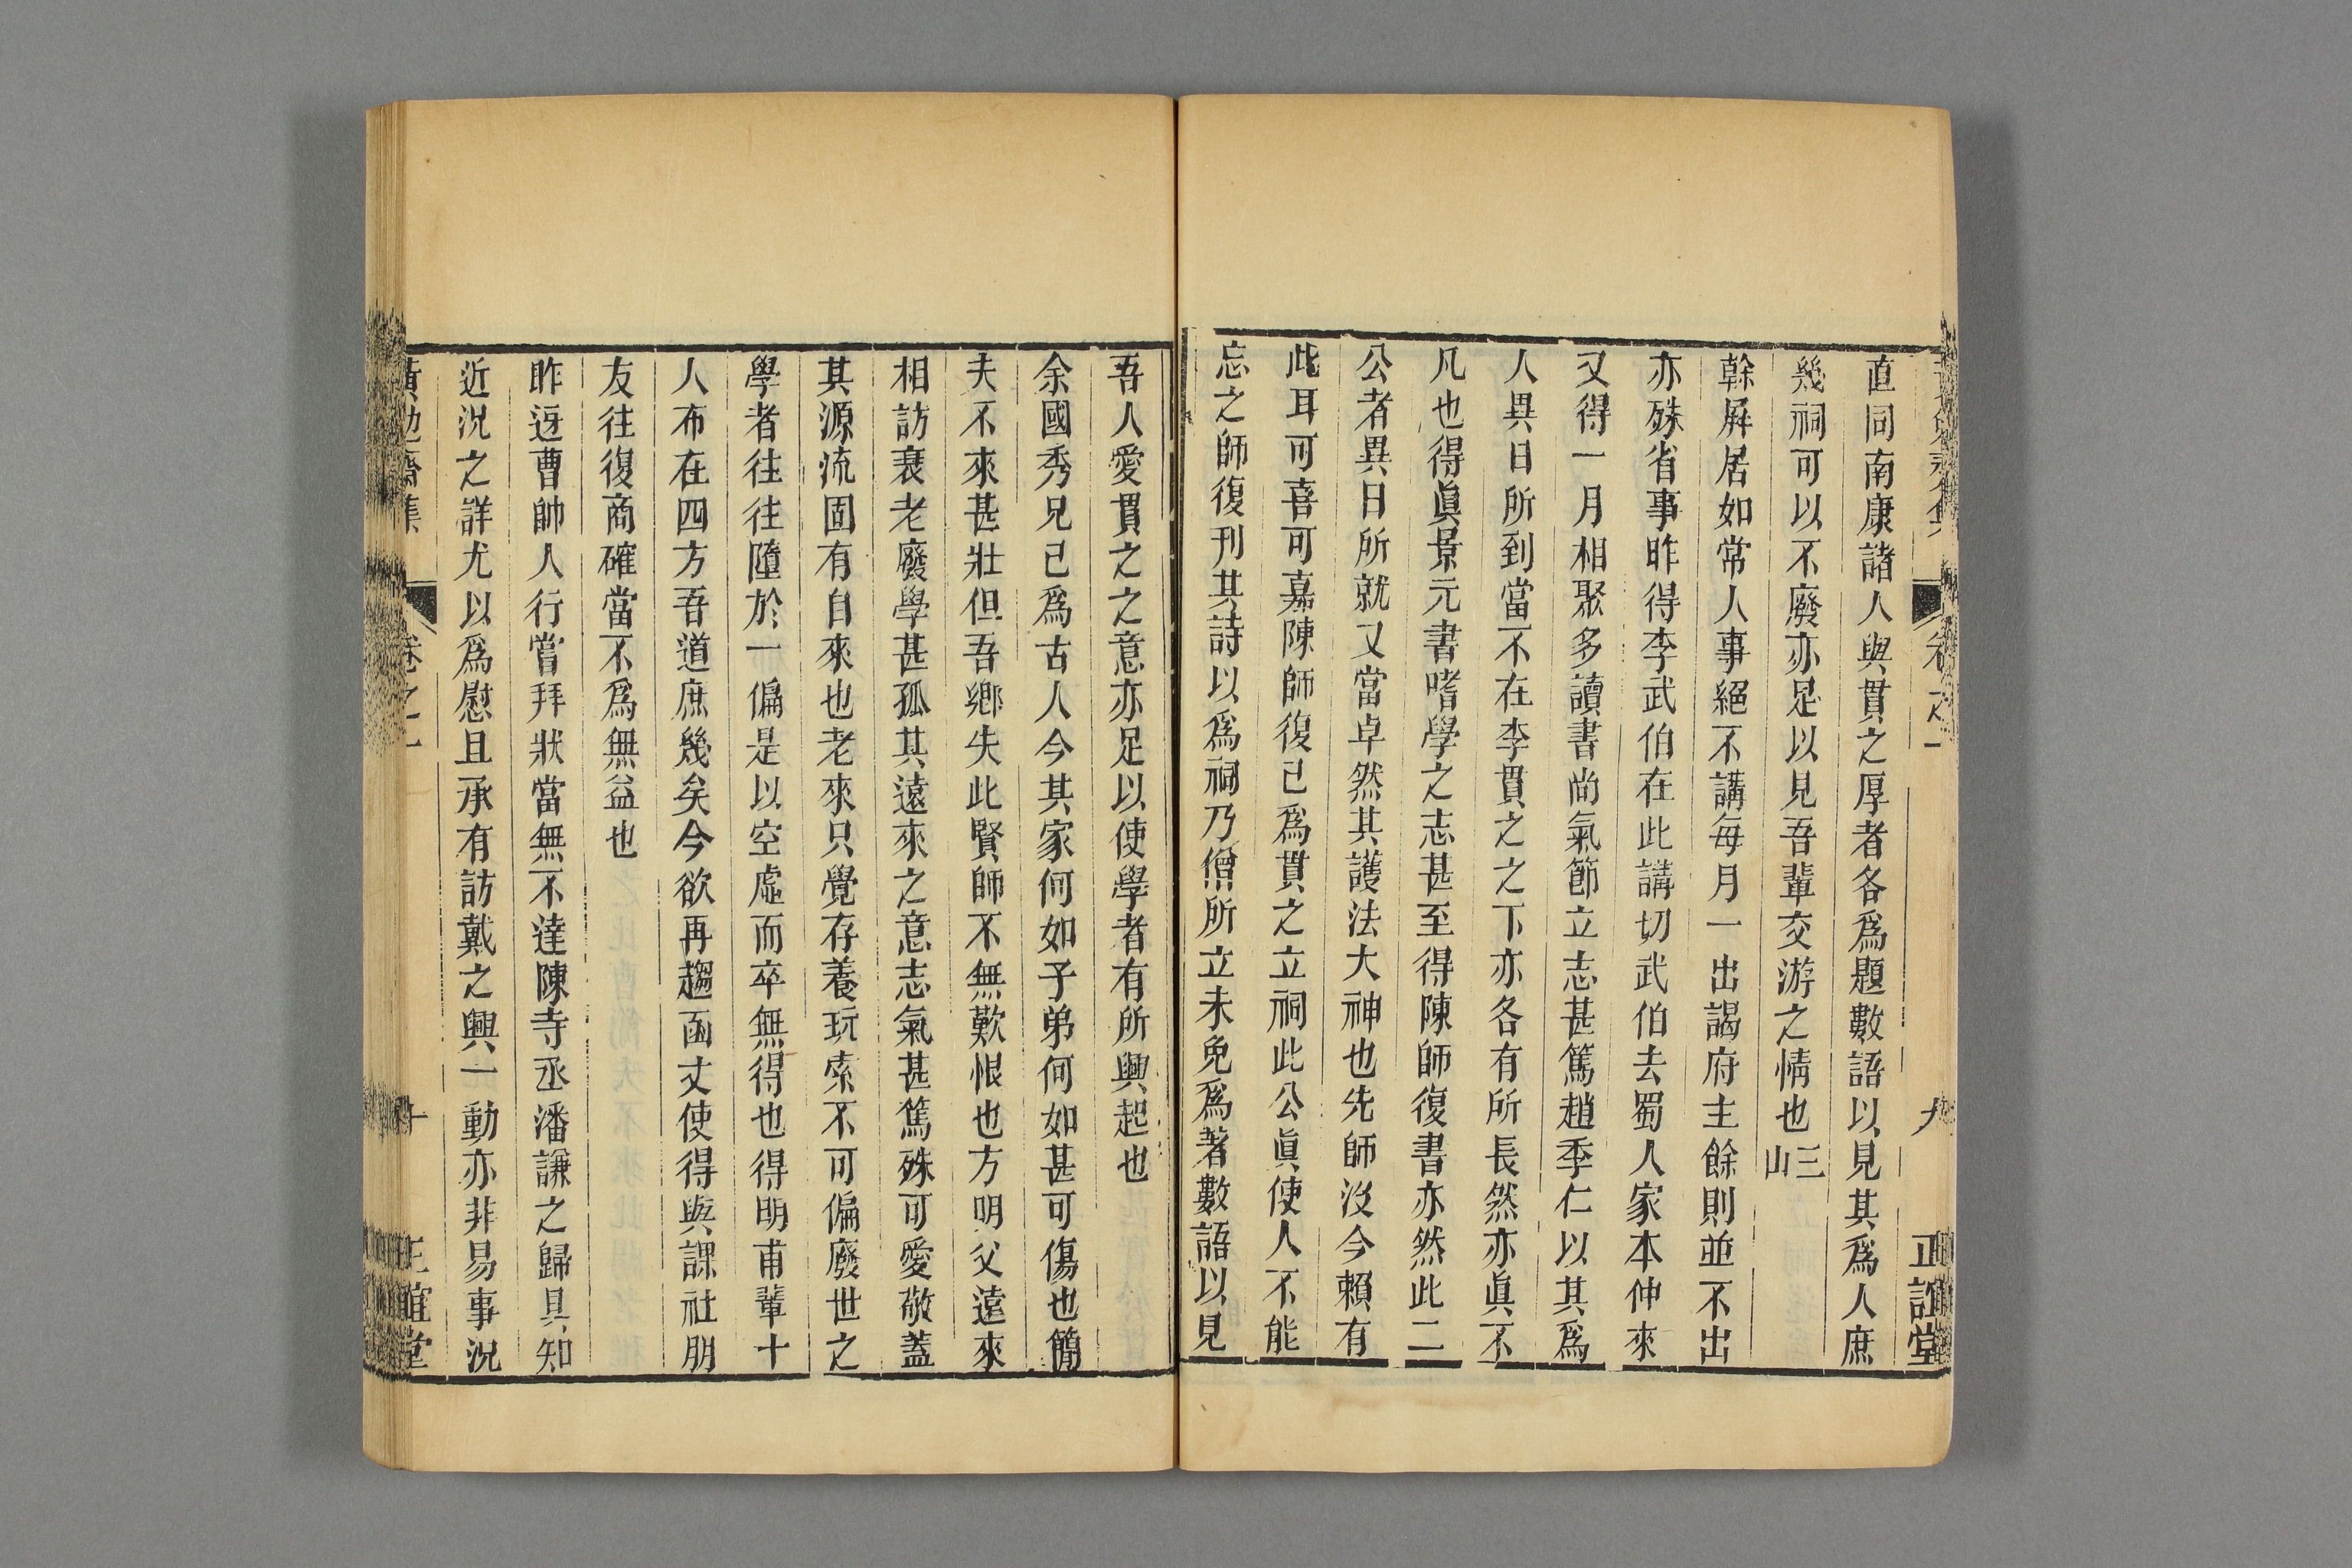 直同南康諸人與貫之厚者各爲題數語以見其爲人庶
幾祠可以不廢亦足以見吾輩交游之情也三山
榦屛居如常人事絕不講每月一出謁府主餘則並不出
亦殊省事昨得李武伯在此講切武伯去蜀人家本仲來
又得一月相聚多讀書尚氣節立志甚篤趙季仁以其爲
人異日所到當不在李貫之之下亦各有所長然亦眞不
凡也得眞景元書嗜學之志甚至得陳師復書亦然此二
公者異日所就又當卓然其護法大神也先師沒今賴有
此耳可喜可嘉陳師復已爲貫之立祠此公眞使人不能
忘之師復刊其詩以爲祠乃僧所立未免爲著數語以見
吾人愛貫之之意亦足以使學者有所興起也
余國秀兄已爲古人今其家何如子弟何如甚可傷也簡
夫不來甚壯但吾鄉失此賢師不無歎恨也方明父遠來
相訪衰老廢學甚孤其遠來之意志氣甚篤殊可愛敬蓋
其源流固有自來也老來只覺存養玩索不可偏廢世之
學者往往墮於一偏是以空虛而卒無得也得明甫輩十
人布在四方吾道庶幾矣今欲再趨函丈使得與課社朋
友往復商確當不爲無益也
昨迓曹帥人行嘗拜狀當無不達陳寺丞潘謙之歸具知
近況之詳尤以爲慰且承有訪戴之興一動亦非易事況
黃勉齋集　卷之二　十　正誼堂